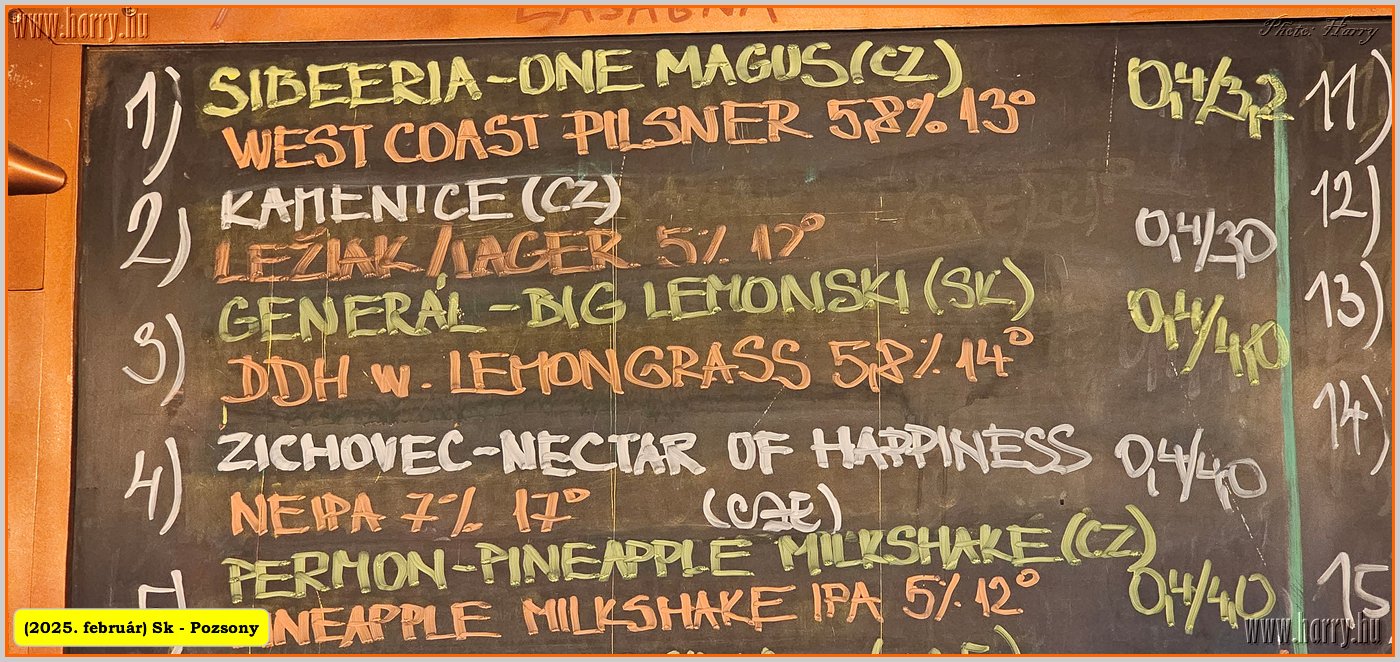 LASAGNA
www.harry.hu
Photo: Harry
1) SIBEERIA-ONE MAGUS(CZ) 0,4/3,2
WEST COAST PILSNER 5,8% 13°
2) KAMENICE (CZ) 0,4/3,0
LEŽIAK/LAGER 5% 12°
3) GENERÁL-BIG LEMONSKI (SK) 0,4/4,0
DDH w. LEMONGRASS 5,8% 14°
4) ZICHOVEC-NECTAR OF HAPPINESS 0,4/4,0
NEIPA 7% 17° (CZ)
PERMON-PINEAPPLE MILKSHAKE(CZ) 0,4/4,0
PINEAPPLE MILKSHAKE IPA 5% 12°
11)
12)
13)
14)
15
(2025. február) Sk - Pozsony
www.harry.hu